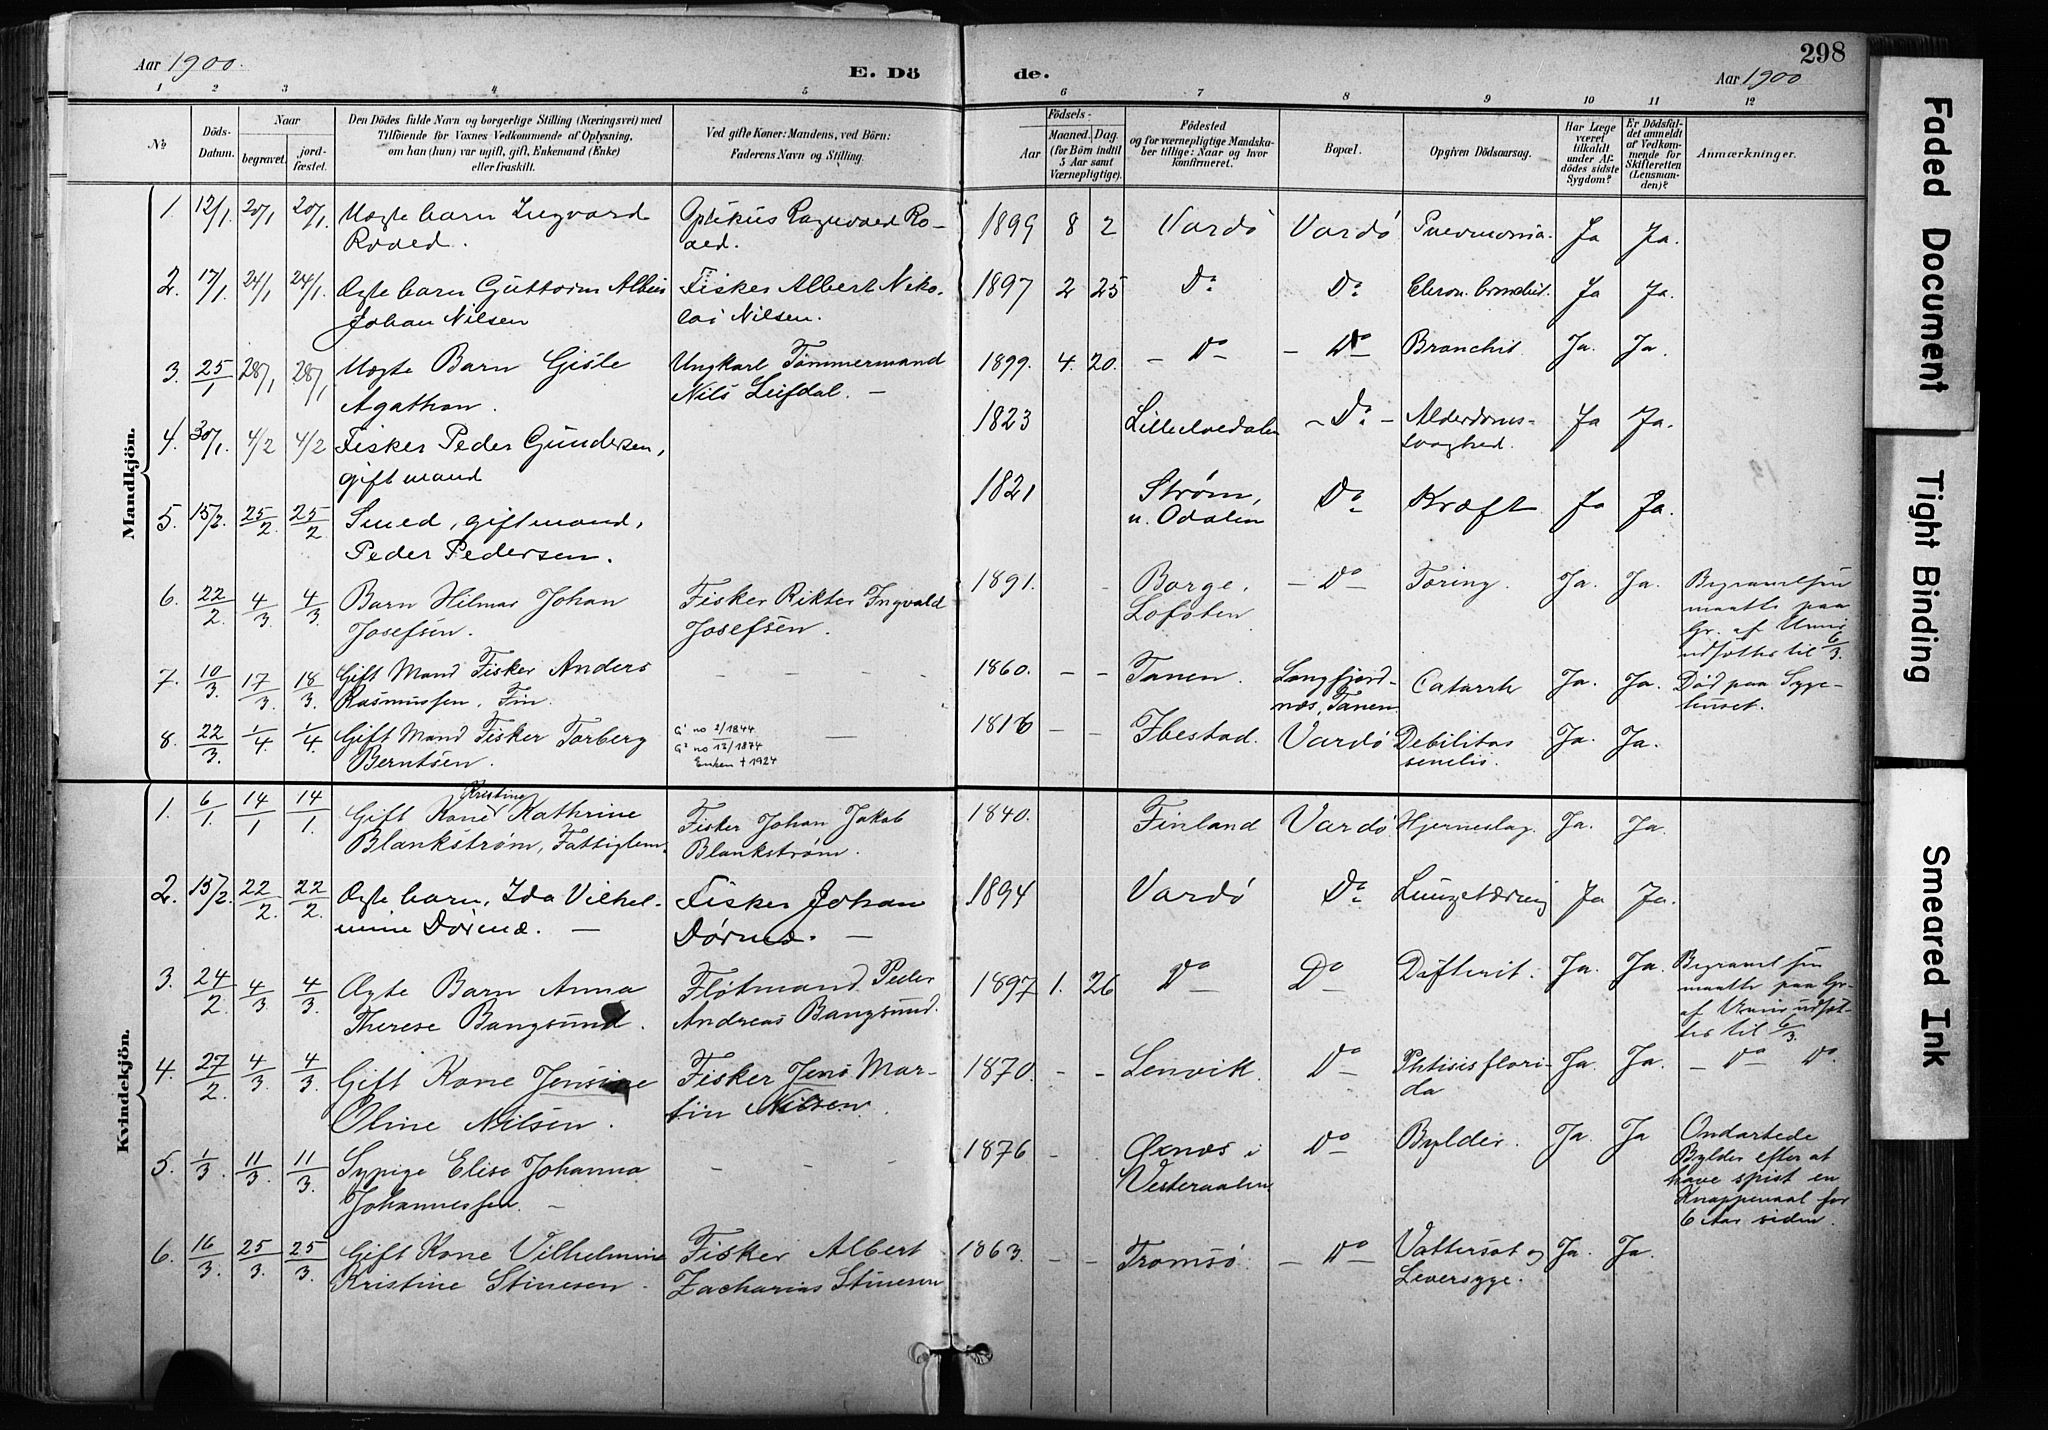 298
Aar 1900.
E. Döde.
Aar 1900
1 2 3 4 5 6 7 8 9 10 11 12
№
Döds-Datum.
Naar
begravet.
jord-fæstet.
Den Dödes fulde Navn og borgerlige Stilling (Næringsvei) med
Tilföiende for Voxnes Vedkommende af Oplysning,
om han (hun) var ugift, gift, Enkemand (Enke)
eller fraskilt.
Ved gifte Koner: Mandens, ved Börn:
Faderens Navn og Stilling.
Födsels-
Aar
Maaned. Dag.
(for Börn indtil
5 Aar samt
Værnepligtige).
Födested
og for værnepligtige Mandska-
ber tillige: Naar og hvor
konfirmeret.
Bopæl.
Opgiven Dödsaarsag.
Har Læge
været
tilkaldt
under Af-
dödes sidste
Sygdom?
Er Dödsfal-
det anmeldt
af Vedkom-
mende for
Skifteretten
(Lensman-
den)?
Anmærkninger.
Mandkjön.
1. 12/1. 20/1 20/1. Uægte barn Ingvard Optikus Ragnvald Ro- 1899 8 2 Vardö Vardö Pneumonia. Ja Ja.
Roald. ald.
2. 17/1. 24/1 24/1. Ægte barn Guttorm Albin Fisker Albert Niko- 1897 2 25 Do Do Ja Ja.
Johan Nilsen lai Nilsen.
3. 25/1 28/1 28/1 Uægte Barn Gisle Ungkarl Tømmermand 1899. 4. 20. - Do - Do Bronchit Ja. Ja.
Agathon. Nils Leifdal. —
4. 30/1. 4/2 4/2 Fisker Peder Gundersen, 1823 Lilleelvedalen - Do - Alderdoms- Ja Ja.
gift mand svaghed.
5. 15/2. 25/2. 25/2 Smed, gift mand, 1821 Strøm, Do Kræft Ja Ja.
Peder Pedersen. n. Odalen
6. 22/2. 4/3 4/3. Barn Hilmar Johan Fisker Rikter Ingvald 1891. - Borge, - Do Tæring. Ja. Ja. Begravelsen
Josefsen. Josefsen. Lofoten maatte paa
Gr. af Uveir
udsættes til 6/3.
7. 10/3. 17/3 18/3 Gift Mand Fisker Anders - - - - 1860. - - Tanen. Langfjord- Catarrh Ja. Ja. Död paa Syge-
Rasmussen, Fin. næs, Tanen huset.
8. 22/3. 1/4. 1/4. Gift Mand Fisker Torberg G1 no 2/1844 — 1816 - - Ibestad. Vardö Debilitas Ja. Ja.
Berntsen. G2 no 12/1874 senilis.
Enken + 1924
Kvindekjön.
1. 6/1. 14/1 14/1. Gift Kone Kristine Kathrine Fisker Johan Jakob 1840. Finland Vardö Hjerneslag. Ja. Ja.
Blankstrøm, Fattiglem. Blankstrøm.
2. 15/2. 22/2. 22/2. Ægte barn, Ida Vilhel- Fisker Johan 1894 Vardö Do Lungetæring Ja Ja.
mine Dørmæ. — Dørmæ. —
3. 24/2. 4/3. 4/3. Ægte Barn Anna Fløtmand Peder 1897 1. 26 Do Do Difterit. Ja. Ja. Begravelsen
Therese Bangsund. Andreas Bangsund. maatte paa Gr.
af Uveir udsæt-
tes til 6/3.
4. 27/2. 4/3. 4/3. Gift Kone Jensine Fisker Jens Mar- 1870. - - Lenvik. Do Phtisis flori- Ja. Ja. - Do Do
Oline Nilsen. tin Nilsen. da
5. 1/3. 11/3. 11/3. Sypige Elise Johanna - - - 1876 - - Øxnæs i Do Bylder. Ja. Ja Ondartede
Johannessen. — Vesteraalen Bylder efter at
have spist en
Knappenaal for
6 Aar siden.
6. 16/3. 25/3. 25/3 Gift Kone Vilhelmine Fisker Albert 1863. - - Tromsö. - Do Vattersot og Ja. Ja.
Kristine Stinesen. Zacharias Stinesen Leversyge.
Faded Document
Tight Binding
Smeared Ink